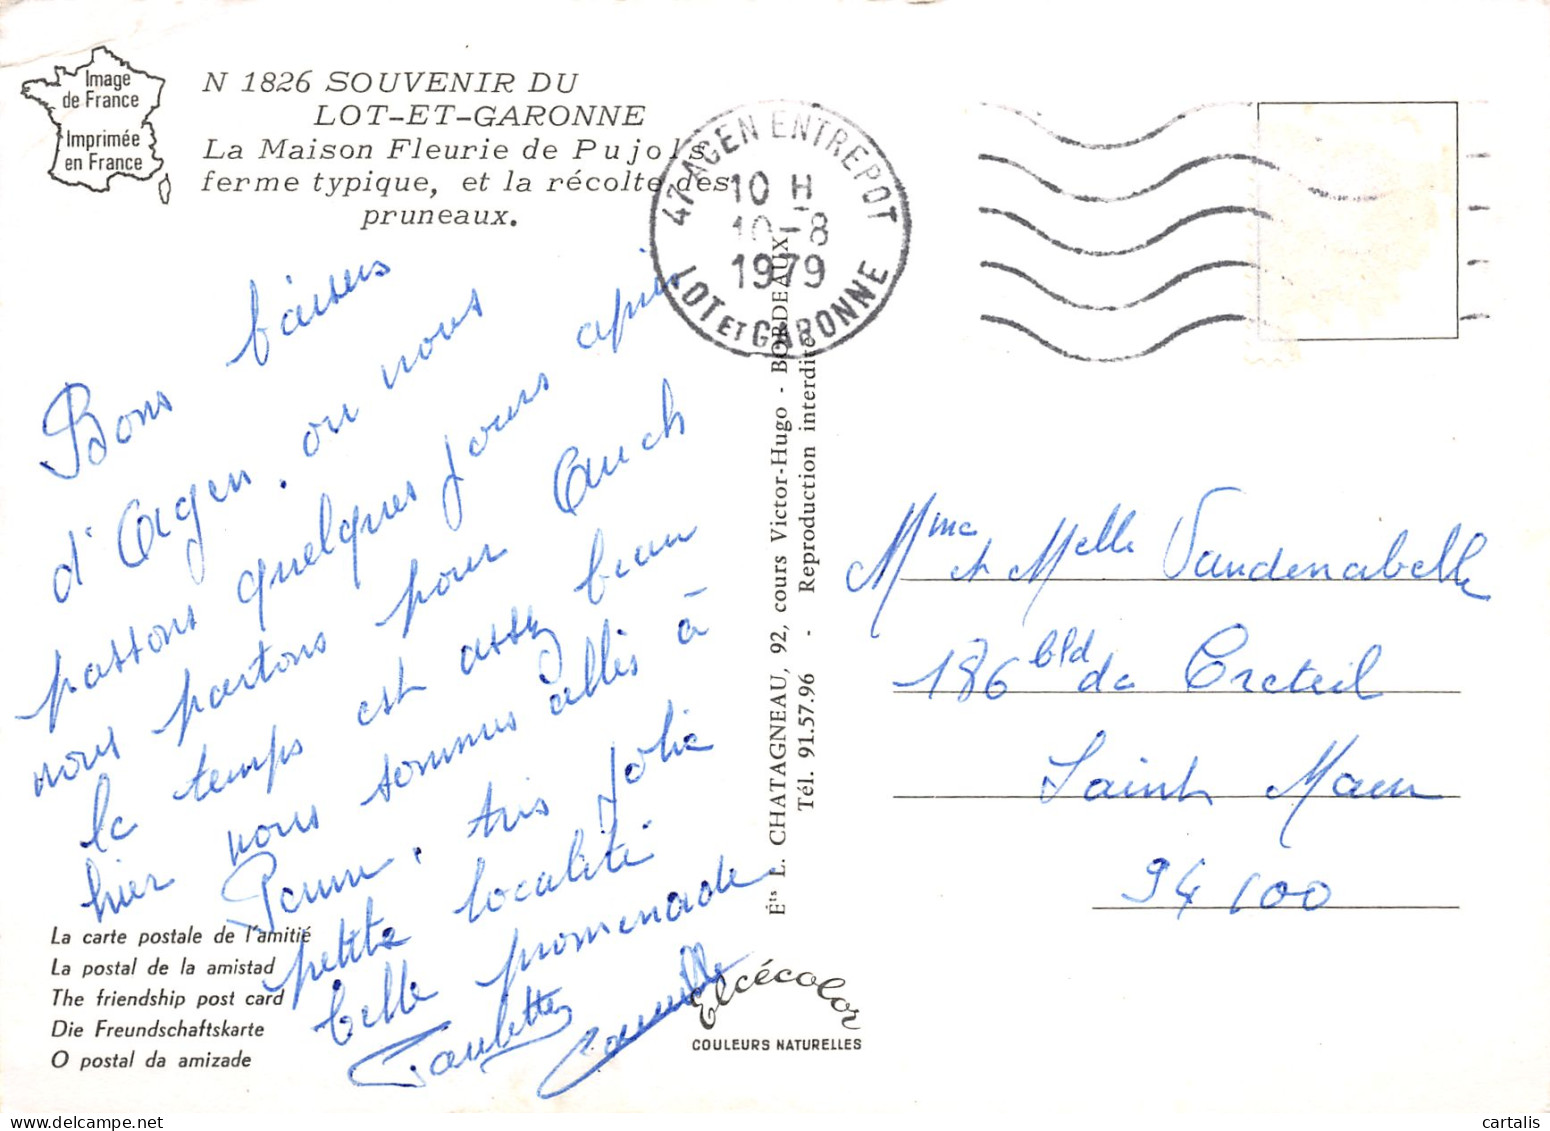 Image
de France
Imprimée
en France
N 1826 SOUVENIR DU
LOT-ET-GARONNE
La Maison Fleurie de Pujols,
ferme typique, et la récolte des
pruneaux.
47 AGEN ENTREPOT
10 H
10-8
1979
LOT ET GARONNE
Bons baisers
d'Agen, ou nous
passons quelques jours après
nous partons pour Auch
le temps est assez beau
hier nous sommes allés à
très jolie
petite localité
belle promenade
Paulette Camille
Ets L. CHATAGNEAU, 92, cours Victor-Hugo - BORDEAUX
Tél. 91.57.96 - Reproduction interdite
Mme et Melle Vandenabelle
186 bld de Creteil
Saint Maur
94100
La carte postale de l'amitié
La postal de la amistad
The friendship post card
Die Freundschaftskarte
O postal da amizade
Elcécolor
COULEURS NATURELLES
cartalis